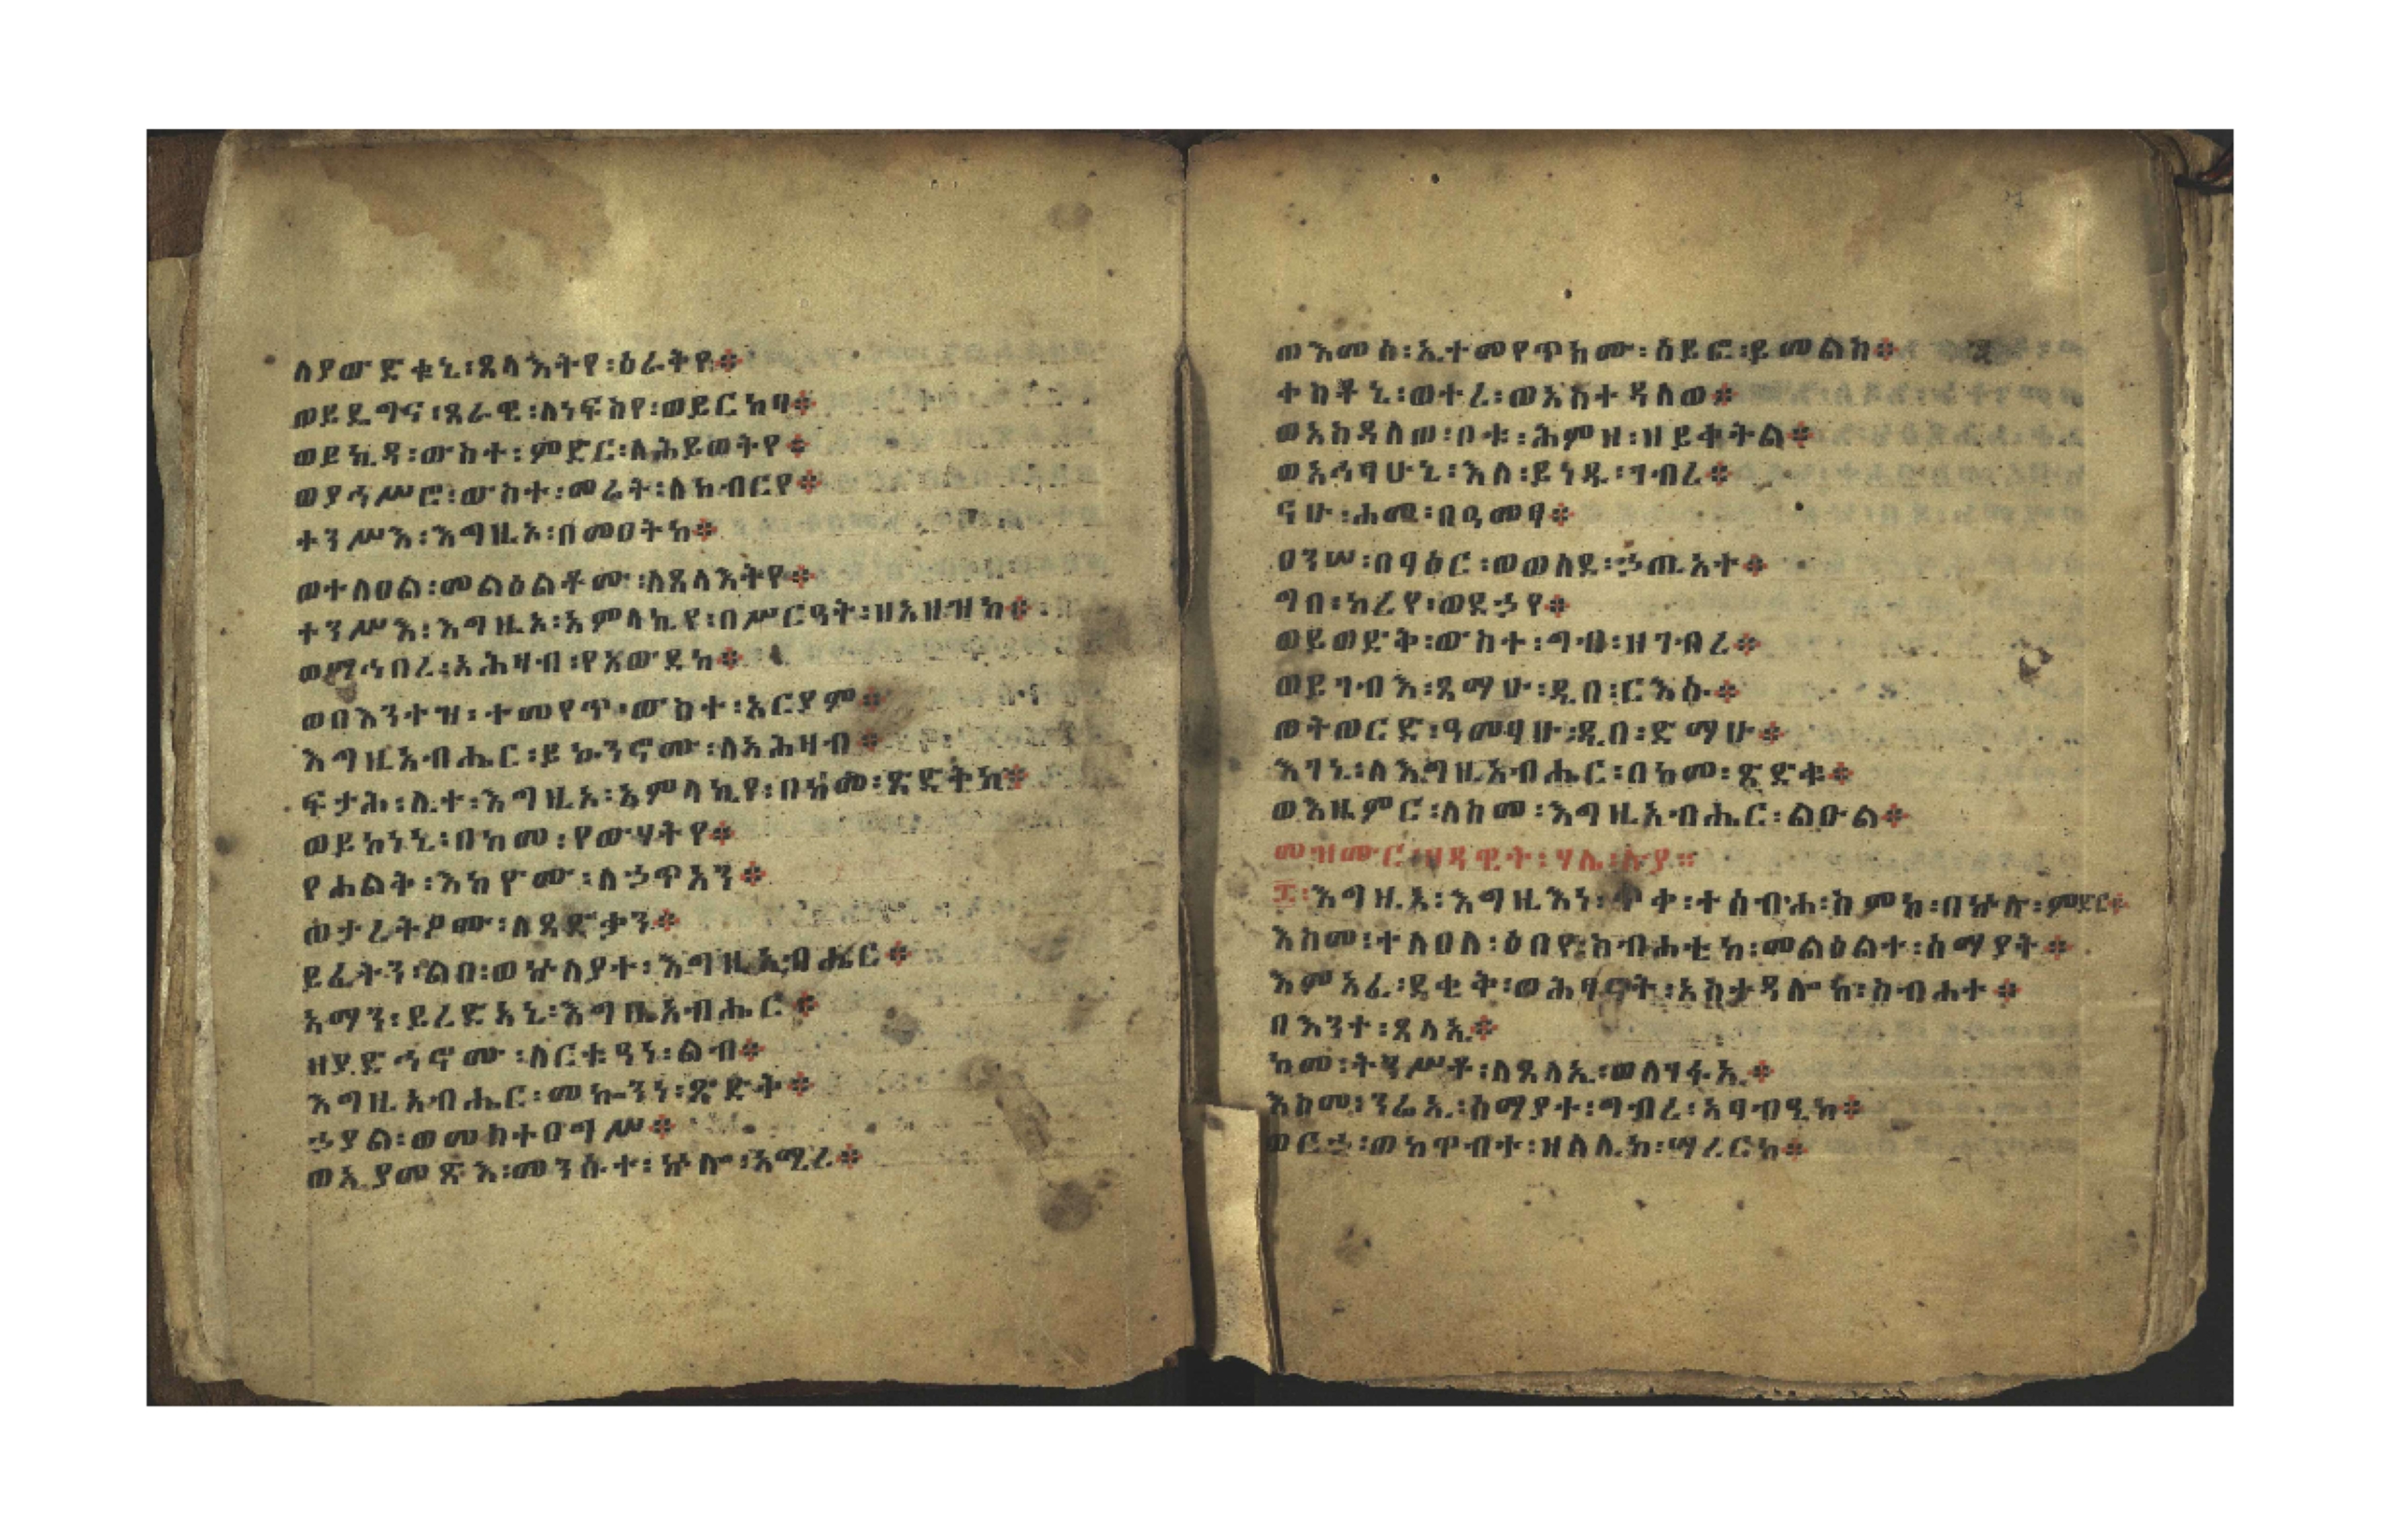 ለያውድቁኒ፡ጸላእትየ፡ዕራትየ፨
ወይዴግና፡ጸራዊ፡ለነፍስየ፡ወይርከባ፨
ወይኪዳ፡ውስተ፡ምድር፡ለሕይወትየ፨
ወያኅሥሮ፡ውስተ፡መሬት፡ለክብርየ፨
ተንሥእ፡እግዚኦ፡በመዐትከ፨
ወተለዐል፡መልዕልቶሙ፡ለጸላእትየ፨
ተንሥእ፡እግዚኦ፡አምላኪየ፡በሥርዓት፡ዘአዘዝከ፨
ወማኅበረ፡አሕዛብ፡የዐውደከ፨
ወበእንተዝ፡ተመየጥ፡ውስተ፡አርያም፨
እግዚአብሔር፡ይኴንኖሙ፡ለአሕዛብ፨
ፍታሕ፡ሊተ፡እግዚኦ፡አምላኪየ፡በከመ፡ጽድቅከ፨
ወይኩነኒ፡በከመ፡የውሃትየ፨
የሐልቅ፡እከዮሙ፡ለኃጥአን፨
ወታረትዖሙ፡ለጻድቃን፨
ይፈትን፡ልበ፡ወኵልያተ፡እግዚአብሔር፨
አማን፡ይረድአኒ፡እግዚአብሔር፨
ዘያድኅኖሙ፡ለርቱዓነ፡ልብ፨
እግዚአብሔር፡መኰንነ፡ጽድቅ፨
ኃያል፡ወመስተዐግሥ፨
ወኢያመጽእ፡መንሱተ፡ኵሎ፡አሚረ፨
ወእመሰ፡ኢተመየጥክሙ፡ሰይፎ፡ይመልክ፨
ቀስቶኒ፡ወተረ፡ወአስተዳለወ፨
ወአስዳለወ፡ቦቱ፡ሕምዘ፡ዘይቀትል፨
ወአሕፃሁኒ፡እለ፡ይነዱ፡ገብረ፨
ናሁ፡ሐመ፡በዓመፃ፨
ፀንሠ፡በፃዕር፡ወወለደ፡ኃጢአተ፨
ግበ፡ከረየ፡ወደኃየ፨
ወይወድቅ፡ውስተ፡ግብ፡ዘገብረ፨
ወይገብእ፡ጻማሁ፡ዲበ፡ርእሱ፨
ወትወርድ፡ዓመፃሁ፡ዲበ፡ድማሁ፨
እገኒ፡ለእግዚአብሔር፡በከመ፡ጽድቁ፨
ወእዜምር፡ለስመ፡እግዚአብሔር፡ልዑል፨
መዝሙር፡ዘዳዊት፡ሃሌ፡ሉያ።
፰፡እግዚኦ፡እግዚእነ፡ጥቀ፡ተሰብሐ፡ስምከ፡በኵሉ፡ምድር፨
እስመ፡ተለዐለ፡ዕበየ፡ስብሐቲከ፡መልዕልተ፡ሰማያት፨
እምአፈ፡ደቂቅ፡ወሕፃናት፡አስታዳሎከ፡ስብሐተ፨
በእንተ፡ጸላኢ፨
ከመ፡ትንሥቶ፡ለጸላኢ፡ወለገፋኢ፨
እስመ፡ንሬኢ፡ሰማያተ፡ግብረ፡አፃብዒከ፨
ወርኃ፡ወከዋብተ፡ዘለሊከ፡ሣረርከ፨